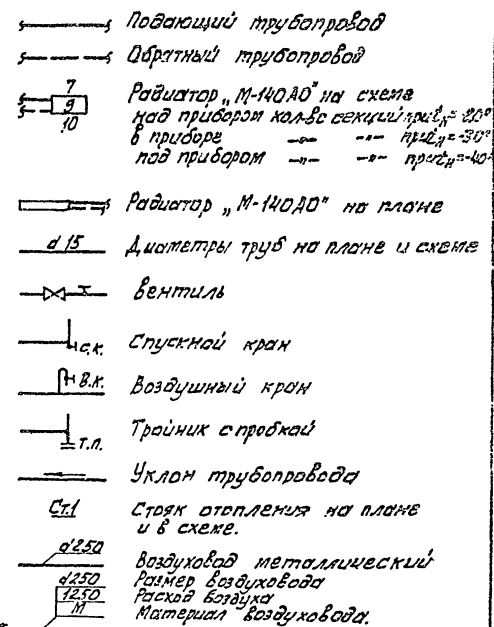 Подающий трубопровод
Обратный трубопровод
7
9
10
Радиатор „М-140АО" на схеме
над прибором кол-во секций при tн=-20°
в приборе —„— —„— при tн=-30°
под прибором —„— —„— при tн=-40°
Радиатор „М-140АО" на плане
d 15 Диаметры труб на плане и схеме
Вентиль
С.К. Спускной кран
В.К. Воздушный кран
Т.П. Тройник с пробкой
Уклон трубопровода
Ст.1 Стояк отопления на плане
и в схеме.
d250 Воздуховод металлический
d250 Размер воздуховода
1250 Расход воздуха
М Материал воздуховода.